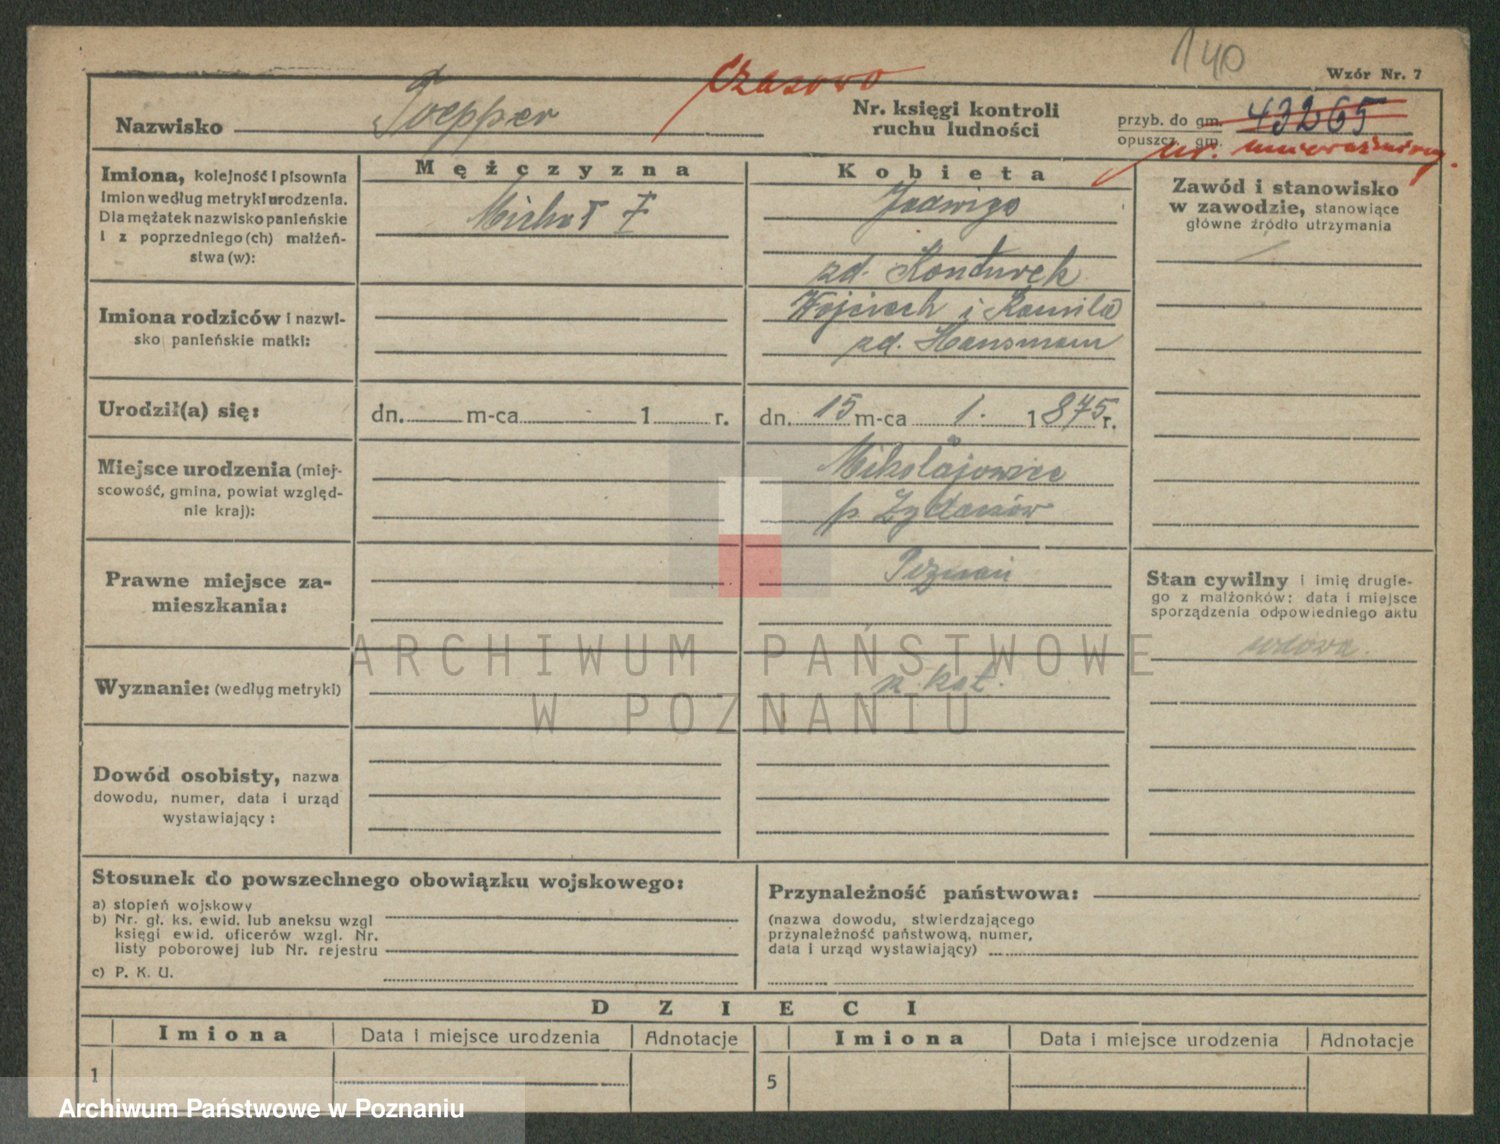 140
Wzór Nr. 7
Czasowo
Nazwisko Toepper
Nr. księgi kontroli
ruchu ludności
przyb. do gm. 43265
opuszcz. gm.
nr. unieważniony.
Mężczyzna
Kobieta
Imiona, kolejność i pisownia
imion według metryki urodzenia.
Dla mężatek nazwisko panieńskie
i z poprzedniego (ch) małżeń-
stwa (w):
Michał
Jadwiga
zd. Konturek
Zawód i stanowisko
w zawodzie, stanowiące
główne źródło utrzymania
Imiona rodziców i nazwi-
sko panieńskie matki:
Wojciech i Kamila
zd. Hansmann
Urodził(a) się:
dn. m-ca 1 r.
dn. 15 m-ca 1. 1875 r.
Miejsce urodzenia (miej-
scowość, gmina, powiat względ-
nie kraj):
Mikołajowice
p. Żydaczów
Prawne miejsce za-
mieszkania:
Poznań
Stan cywilny i imię drugie-
go z małżonków; data i miejsce
sporządzenia odpowiedniego aktu
wdowa.
Wyznanie: (według metryki)
r. kat.
ARCHIWUM PAŃSTWOWE
W POZNANIU
Dowód osobisty, nazwa
dowodu, numer, data i urząd
wystawiający:
Stosunek do powszechnego obowiązku wojskowego:
a) stopień wojskowy
b) Nr. gł. ks. ewid. lub aneksu wzgl
księgi ewid. oficerów wzgl. Nr.
listy poborowej lub Nr. rejestru
c) P. K. U.
Przynależność państwowa:
(nazwa dowodu, stwierdzającego
przynależność państwową, numer,
data i urząd wystawiający)
DZIECI
Imiona Data i miejsce urodzenia Adnotacje
Imiona Data i miejsce urodzenia Adnotacje
1
5
Archiwum Państwowe w Poznaniu